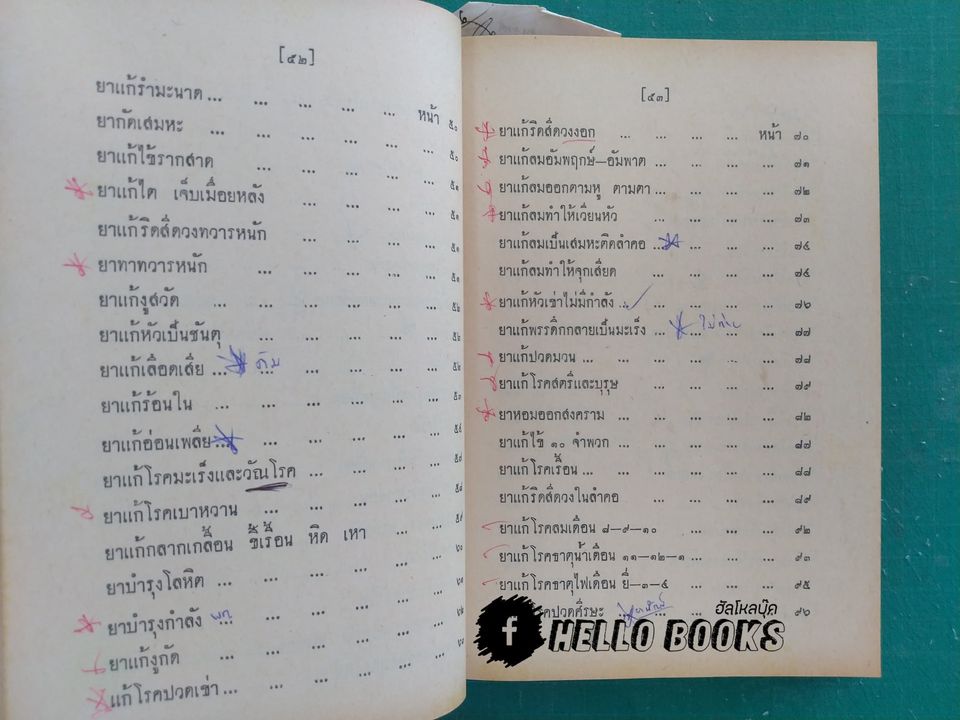 [๕๒]
ยาแก้รำมะนาด ... ... ... ... ... หน้า ๕๐
ยากัดเสมหะ ... ... ... ... ... ๕๐
ยาแก้ไข้รากสาด ... ... ... ... ... ๕๑
ยาแก้ไต เจ็บเมื่อยหลัง ... ... ... ... ๕๑
ยาแก้ริดสีดวงทวารหนัก ... ... ... ... ๕๑
ยาทาทวารหนัก ... ... ... ... ... ๕๑
ยาแก้งูสวัด ... ... ... ... ... ๕๒
ยาแก้หัวเป็นชันตุ ... ... ... ... ๕๒
ยาแก้เลือดเสีย ... ... ... ... ... ๕๒
ยาแก้ร้อนใน ... ... ... ... ... ๕๓
ยาแก้อ่อนเพลีย ... ... ... ... ... ๕๕
ยาแก้โรคมะเร็งและวัณโรค ... ... ... ... ๕๗
ยาแก้โรคเบาหวาน ... ... ... ... ๕๘
ยาแก้กลากเกลื้อน ขี้เรื้อน หิด เหา ... ... ... ๕๙
ยาบำรุงโลหิต ... ... ... ... ... ๖๐
ยาบำรุงกำลัง ... ... ... ... ...
ยาแก้งูกัด ... ... ... ... ...
แก้โรคปวดเข่า ... ... ... ... ...
[๕๓]
ยาแก้ริดสีดวงงอก ... ... ... ... หน้า ๗๐
ยาแก้ลมอัมพฤกษ์—อัมพาต ... ... ... ... ๗๑
ยาแก้ลมออกตามหู ตามตา ... ... ... ... ๗๒
ยาแก้ลมทำให้เวียนหัว ... ... ... ... ๗๓
ยาแก้ลมเป็นเสมหะติดลำคอ ... ... ... ... ๗๔
ยาแก้ลมทำให้จุกเสียด ... ... ... ... ๗๕
ยาแก้หัวเข่าไม่มีกำลัง ... ... ... ... ๗๖
ยาแก้พรรดึกกลายเป็นมะเร็ง ... ... ... ... ๗๗
ยาแก้ปวดมวน ... ... ... ... ... ๗๘
ยาแก้โรคสตรีและบุรุษ ... ... ... ... ๗๙
ยาหอมออกสงคราม ... ... ... ... ๘๒
ยาแก้ไข้ ๑๐ จำพวก ... ... ... ... ๘๗
ยาแก้โรคเรื้อน ... ... ... ... ... ๘๘
ยาแก้ริดสีดวงในลำคอ ... ... ... ... ๘๙
ยาแก้โรคลมเดือน ๘—๙—๑๐ ... ... ... ๙๒
ยาแก้โรคธาตุน้ำเดือน ๑๑—๑๒—๑ ... ... ... ๙๓
ยาแก้โรคธาตุไฟเดือน ยี่—๓—๔ ... ... ... ๙๕
โรคปวดศีรษะ ... ... ... ... ๙๖
ฮัลโหลบุ๊ค
f HELLO BOOKS